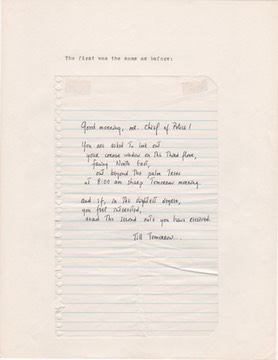 The first was the same as before:
Good morning, mr. Chief of Police!
You are asked to look out
your corner window on the Third floor,
facing North East,
out beyond the palm Trees
at 8:00 am sharp Tomorrow morning.
and if, in the slightest degree,
you feel interested,
read the second note you have received.
Till Tomorrow...